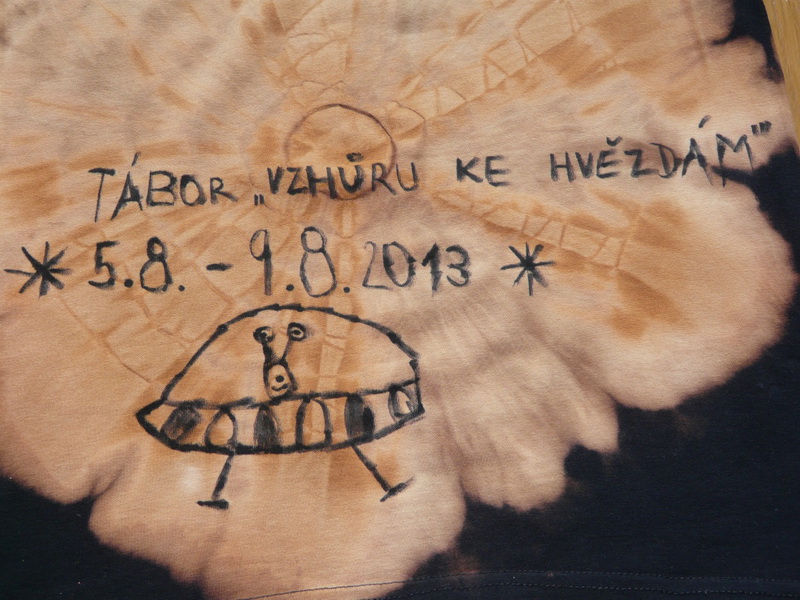 TÁBOR „VZHŮRU KE HVĚZDÁM"
* 5.8. - 9.8.2013 *